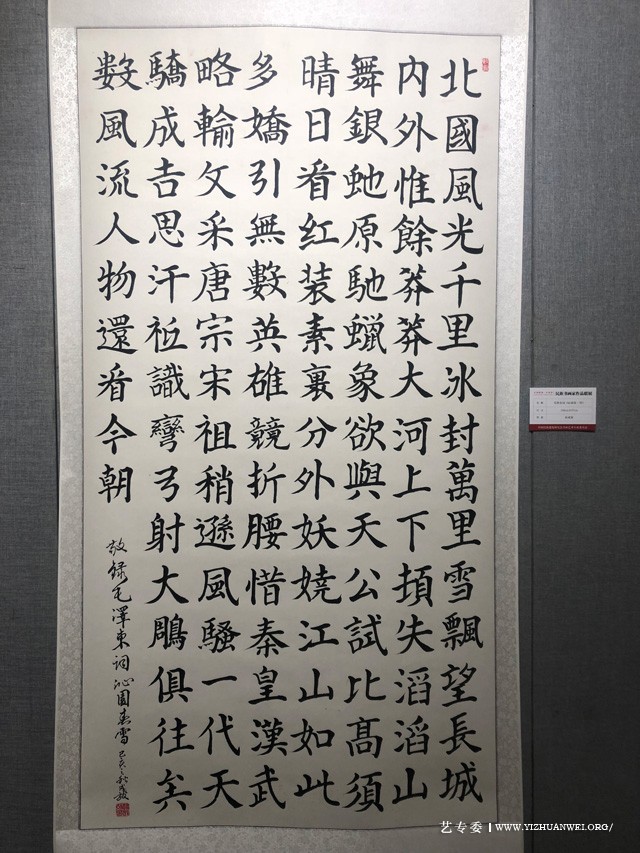 北國風光千里冰封萬里雪飄望長城
内外惟餘莽莽大河上下頓失滔滔山
舞銀虵原馳蠟象欲與天公試比髙須
晴日看红装素裹分外妖嬈江山如此
多嬌引無數英雄競折腰惜秦皇漢武
略輸文采唐宗宋祖稍遜風騷一代天
驕成吉思汗衹識彎弓射大鵰俱往矣
數風流人物還看今朝
敬録毛澤東詞沁園春雪 己亥之秋
艺专委 | WWW.YIZHUANWEI.ORG/